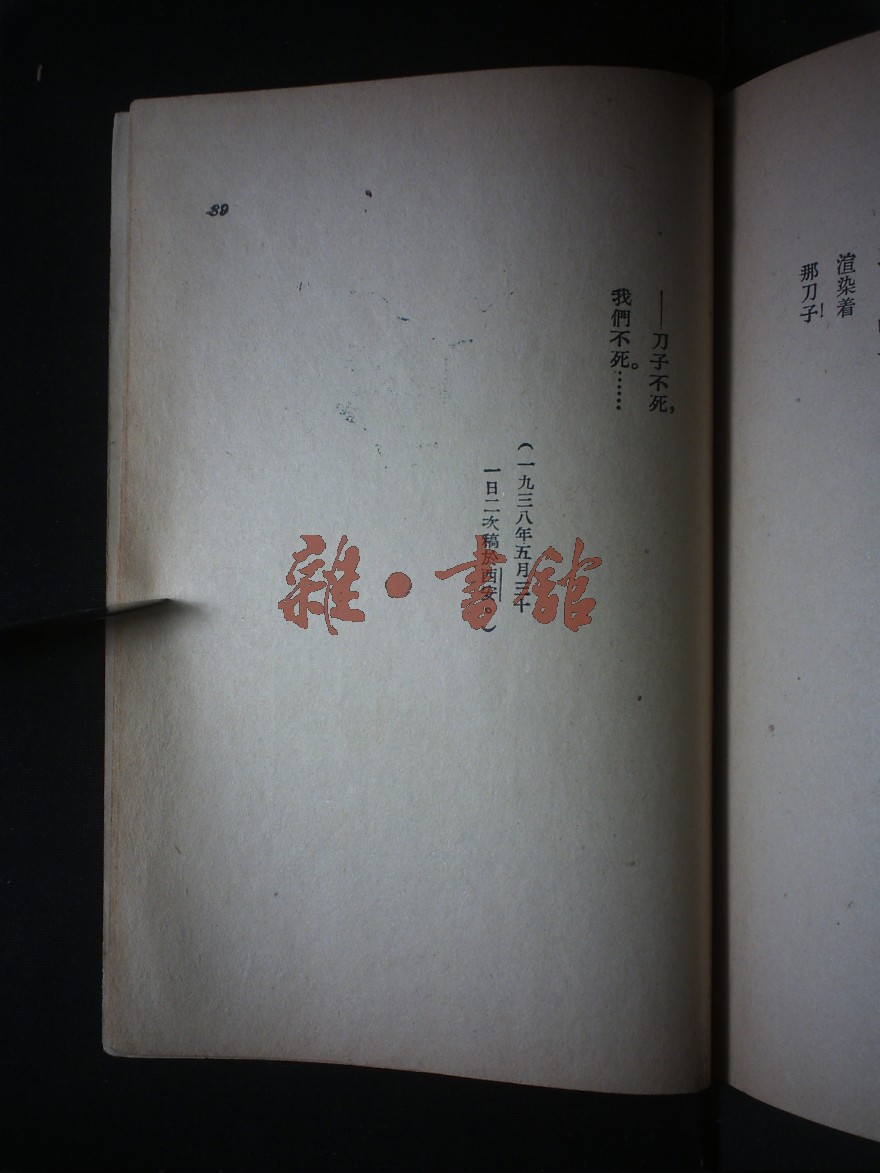 渲染着
那刀子!
——刀子不死,
我們不死。……
(一九三八年五月三十
一日二次稿於西安。)
39
雜·書館